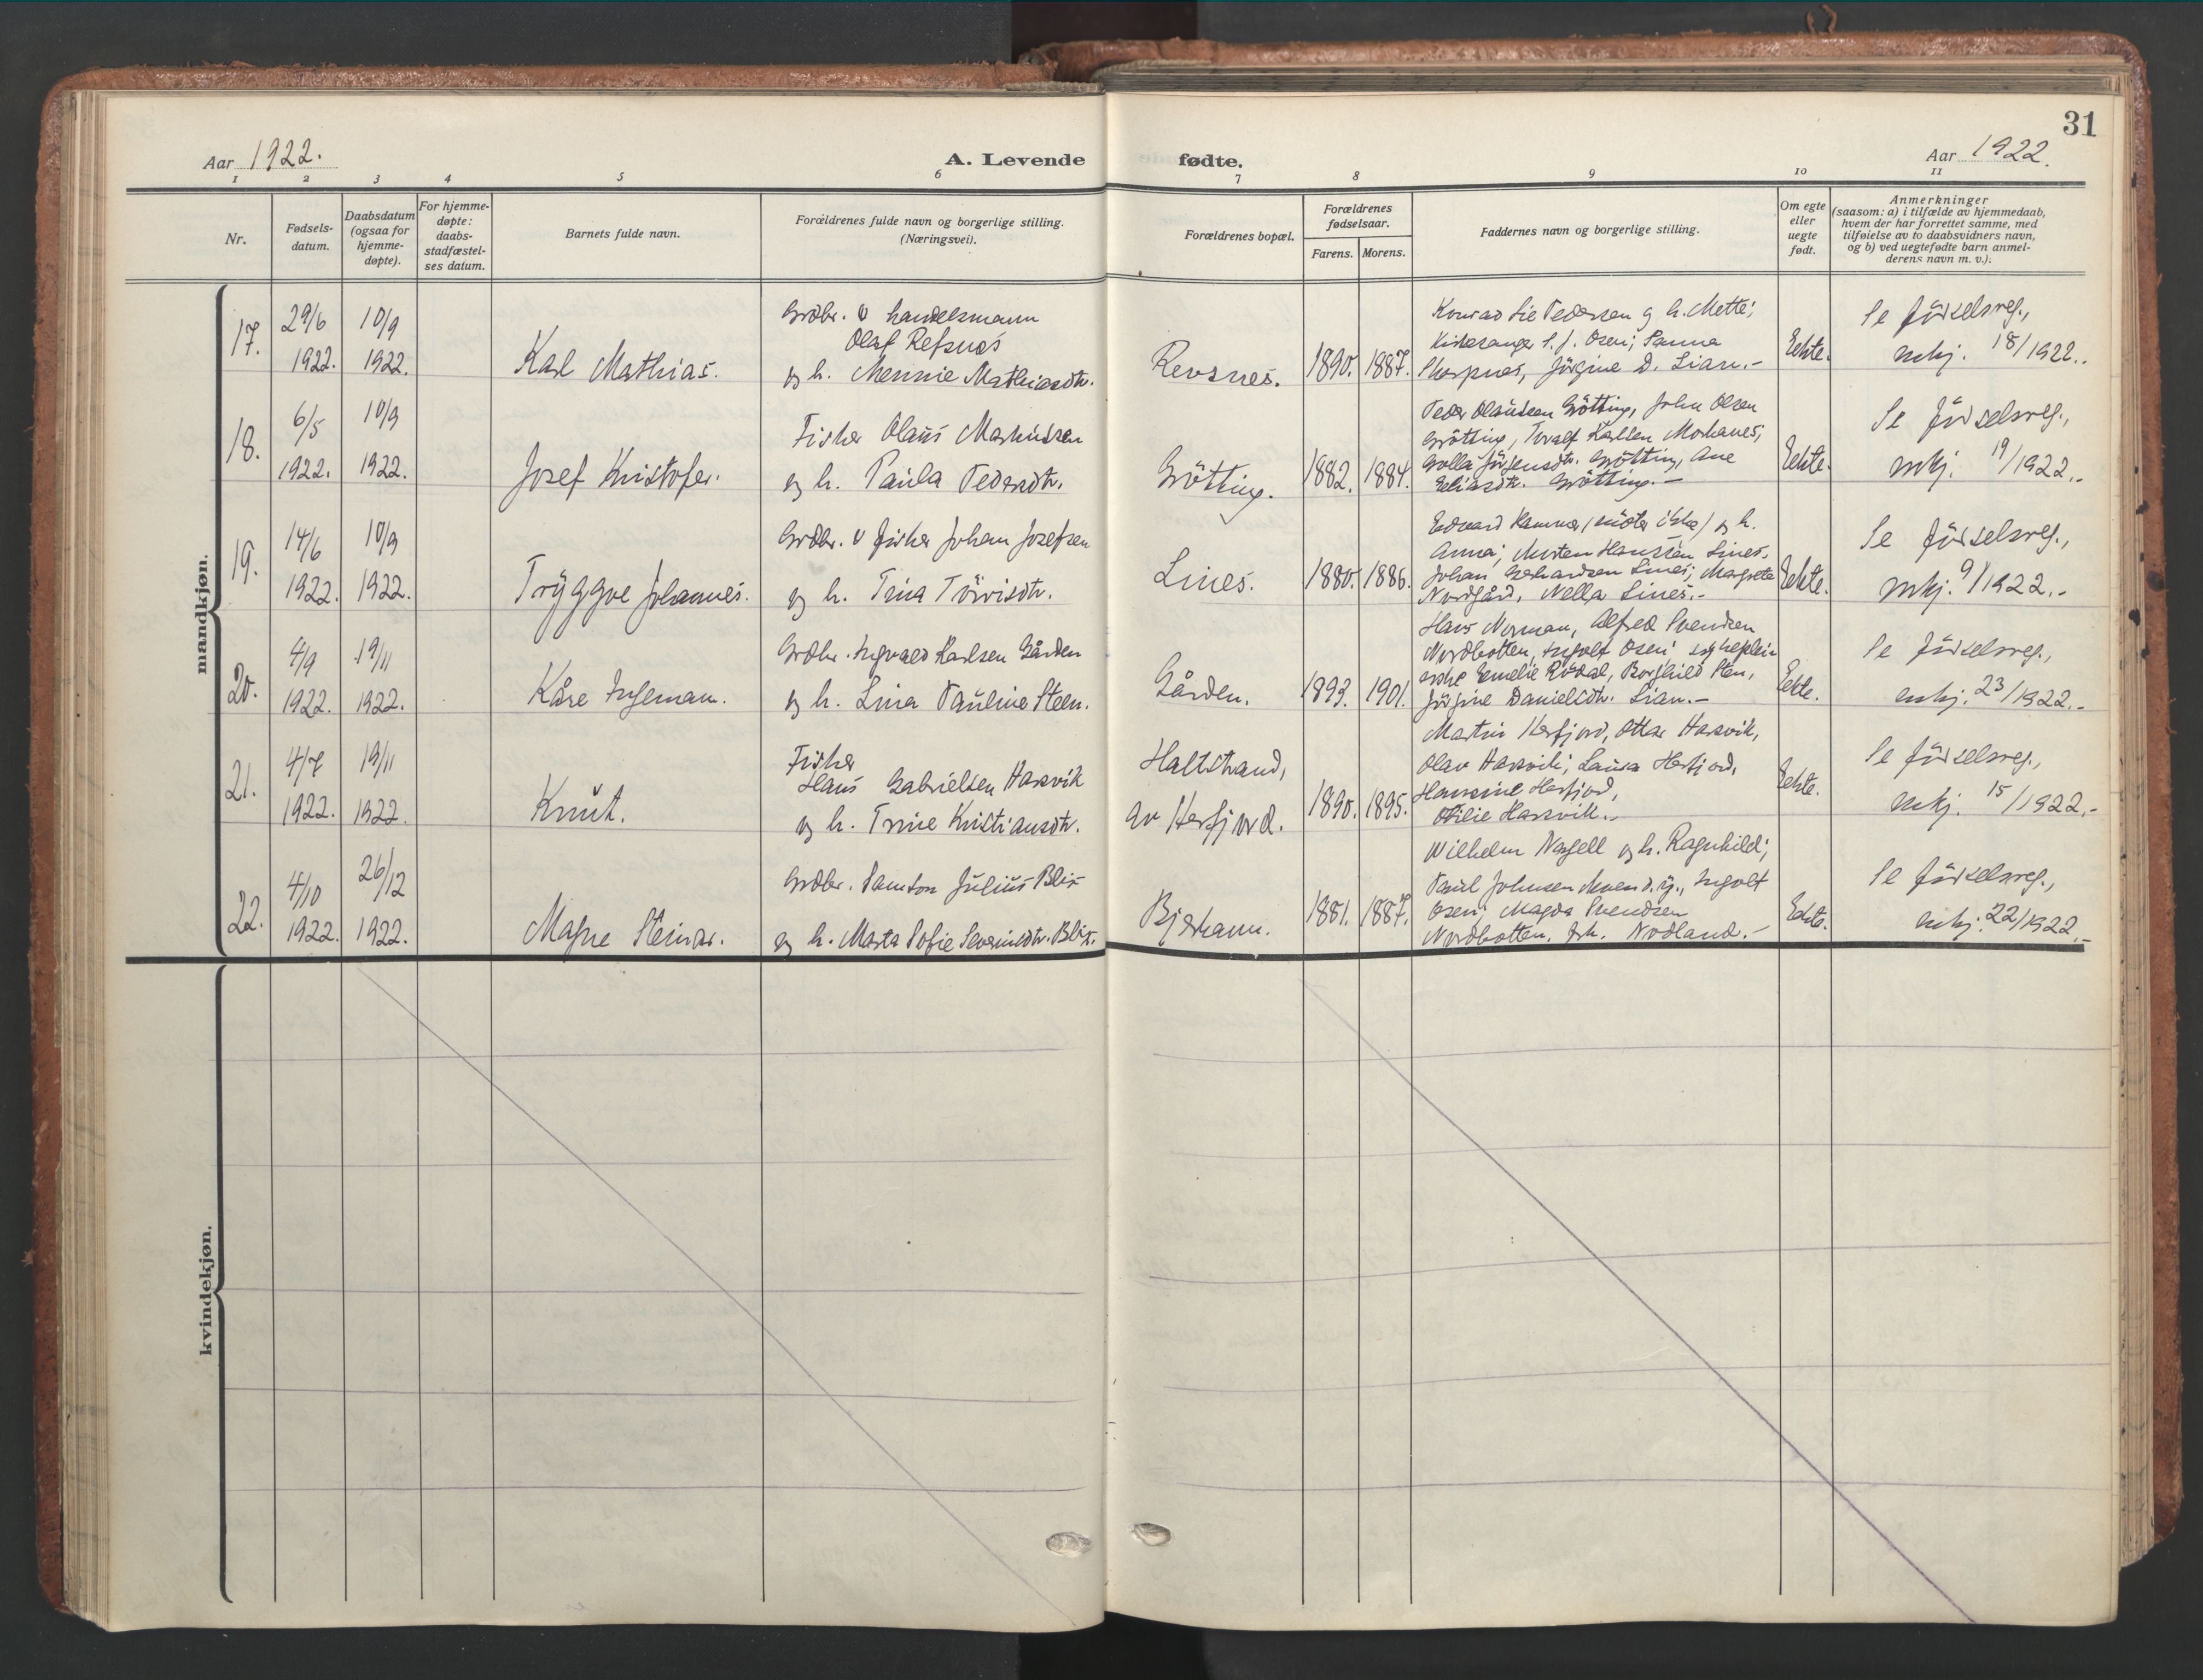 31
Aar 1922.
A. Levende
fødte.
Aar 1922.
1 2 3 4 5 6 7 8 9 10 11
Nr.
Fødsels-
datum.
Daabsdatum
(ogsaa for
hjemme-
døpte).
For hjemme-
døpte:
daabs-
stadfæstel-
ses datum.
Barnets fulde navn.
Forældrenes fulde navn og borgerlige stilling.
(Næringsvei).
Forældrenes bopæl.
Forældrenes
fødselsaar.
Farens. Morens.
Faddernes navn og borgerlige stilling.
Om egte
eller
uegte
født.
Anmerkninger
(saasom: a) i tilfælde av hjemmedaab,
hvem der har forrettet samme, med
tilføielse av to daabsvidners navn,
og b) ved uegtefødte barn anmel-
derens navn m. v.).
mandkjøn.
17.
29/6
1922.
10/9
1922.
Karl Mathias.
Grdbr. & handelsmann
Olaf Refsnes
og h. Mennie Mathiasdtr.
Revsnes.
1890. 1887.
Konrad Lie Pedersen og h. Mette;
Kirkesanger S. J. Osen; Sanna
Skarpnes, Jörgine D. Lian.-
Eekte.
Se födselsreg.,
mkj. 18/1922.
18.
6/5
1922.
10/9
1922.
Josef Kristofer.
Fisker Olaus Markussen
og h. Paula Pedersdtr.
Götting.
1882. 1884.
Peder Olaussen Grötting, John Olsen
Grötting, Toralf Karlsen Mohanes;
Golla Jörgensdtr. Grötting, Ane
Eliasdtr. Grötting.-
Eekte.
Se födselsreg.,
mkj. 19/1922.-
19.
14/6
1922.
10/9
1922.
Trÿggve Johannes.
Grdbr. & fisker Johan Josefsen
og h. Trina Tövrisdtr.
Lines.
1880. 1886.
Edvard Hammer (möter ikke) og h.
Anna; Morten Hanssen Lines,
Johan Gerhardsen Lines; Margrete
Nordgård, Nella Lines.-
Eekte.
Se födselsreg.,
mkj. 9/1922.-
20.
4/9
1922.
19/11
1922.
Kåre Ingeman.
Grdbr. Ingvald Karlsen Gården
og h. Lina Pauline Steen.
Gården.
1893. 1901.
Hans Norman, Alfred Svendsen
Nordbotten, Ingolf Osen; sykeplei-
erske Emelie Rödal, Borghild Sten,
Jörgine Danielsdtr. Lian.-
Eekte.
Se födselsreg.,
mkj. 23/1922.-
21.
4/7
1922.
19/11
1922.
Knut.
Fisker
Hans Gabrielsen Harsvik
og h. Trine Kristiansdtr.
Haltstrand,
av Herfjord.
1890. 1895.
Martin Herfjord, Ottar Harsvik,
Olav Harsvik; Laura Herfjord,
Hansine Herfjord,
Otilie Harsvik.-
Eekte.
Se födselsreg.,
mkj. 15/1922.-
22.
4/10
1922.
26/12
1922.
Magne Steinar.
Grdbr. Samson Julius Blix
og h. Marta Sofie Severinsdtr. Blix.
Bjerkann.
1881. 1887.
Wilhelm Nagell og h. Ragnhild;
Paul Johnsen Moen d.y., Ingolf
Osen; Magda Svendsen
Nordbotten, frk. Nodland.-
Eekte.
Se födselsreg.,
mkj. 22/1922.-
kvindekjøn.